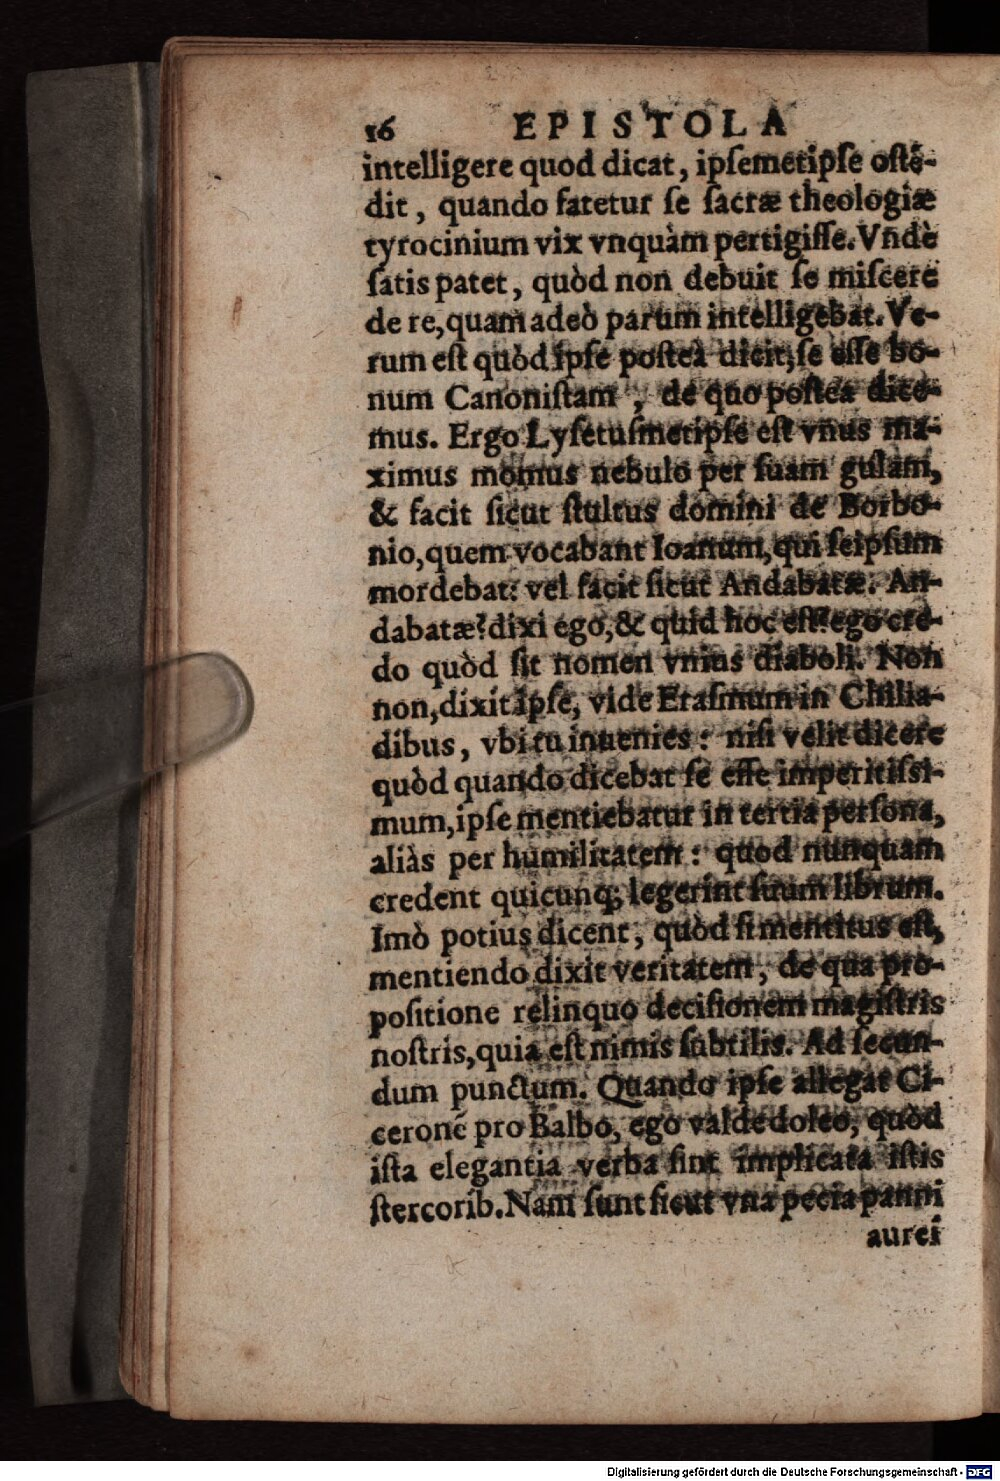 16 EPISTOLA
intelligere quod dicat, ipſemetipſe oſtē-
dit, quando fatetur ſe ſacræ theologiæ
tyrocinium vix vnquàm pertigiſſe. Vndè
ſatis patet, quòd non debuit ſe miſcere
de re, quam adeò parum intelligebat. Ve-
rum eſt quòd ipſe poſteà dicit, ſe eſſe bo-
num Canoniſtam, de quo poſteà dice-
mus. Ergo Lyſetuſmetipſe eſt vnus ma-
ximus momus nebulo per ſuam gulam,
& facit ſicut ſtultus domini de Borbo-
nio, quem vocabant Ioanum, qui ſeipſum
mordebat: vel facit ſicut Andabatæ. An-
dabatæ? dixi ego, & quid hoc eſt? ego cre-
do quòd ſit nomen vnius diaboli. Non
non, dixit ipſe, vide Eraſmum in Chilia-
dibus, vbi tu inuenies: niſi velit dicere
quòd quando dicebat ſe eſſe imperitiſsi-
mum, ipſe mentiebatur in tertia perſona,
aliàs per humilitatem: quod nunquam
credent quicunq; legerint ſuum librum.
Imò potius dicent, quòd ſi mentitus eſt,
mentiendo dixit veritatem, de qua pro-
poſitione relinquo deciſionem magiſtris
noſtris, quia eſt nimis ſubtilis. Ad ſecun-
dum punctum. Quando ipſe allegat Ci-
ceronē pro Balbo, ego valde doleo, quòd
iſta elegantia verba ſint implicata iſtis
ſtercorib. Nam ſunt ſicut vna pecia panni
aurei
Digitalisierung gefördert durch die Deutsche Forschungsgemeinschaft - DFG